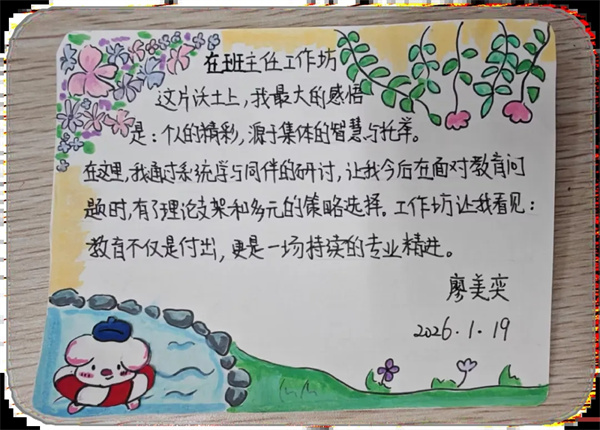 在班主任工作坊
这片沃土上，我最大的感悟
是：个人的精彩，源于集体的智慧与托举。
在这里，我通过系统学与同伴的研讨，让我今后在面对教育问
题时，有了理论支架和多元的策略选择。工作坊让我看见：
教育不仅是付出，更是一场持续的专业精进。
廖美奕
2026.1.19